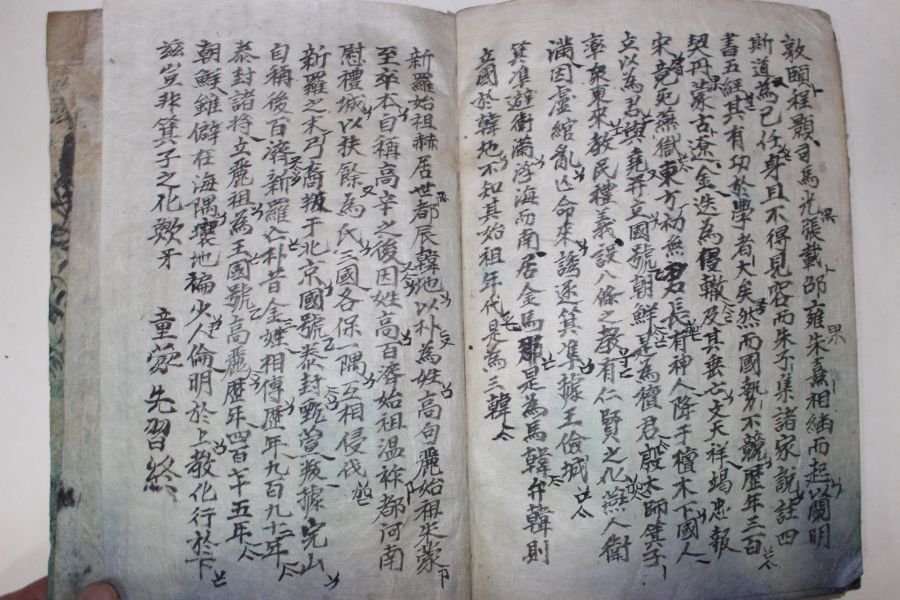 敦頤程顥司馬光張載邵雍朱熹相繼而起以闡明
斯道為己任身且不得見容而朱子集諸家說註四
書五經其有功於學者大矣然而國勢不競歷年三百
契丹蒙古遼金迭為侵轢及其垂亡文天祥竭忠報
宋竟死無獄東方初無君長有神人降于檀木下國人
立以為君與堯並立國號朝鮮是為檀君殷太師箕子
率衆東來教民禮義設八條之教有仁賢之化燕人衛
滿因盧綰亂亡命來誘逐箕準據王儉城
箕準避衛滿浮海而南居金馬郡是為馬韓弁韓則
立國於韓地不知其始祖年代是為三韓
新羅始祖赫居世都辰韓地以朴為姓高句麗始祖朱蒙
至卒本自稱高辛之後因姓高百濟始祖温祚都河南
慰禮城以扶餘為氏三國各保一隅互相侵伐
新羅之末弓裔叛于北京國號泰封甄萱叛據完山
自稱後百濟新羅亡朴昔金姓相傳歷年九百九十二年
泰封諸將立麗祖為王國號高麗歷年四百七十五年
朝鮮雖僻在海隅壤地褊少人倫明於上教化行於下
玆豈非箕子之化歟乎
童蒙先習終